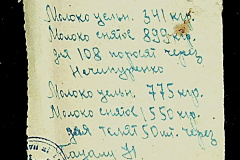 Молоко цельн. 341 клг.
Молоко снятое 899 клгр.
для 108 поросят через
Нечипуренко
Молоко цельн. 775 клгр.
Молоко снятое 1550 клгр.
для телят 50 шт. через